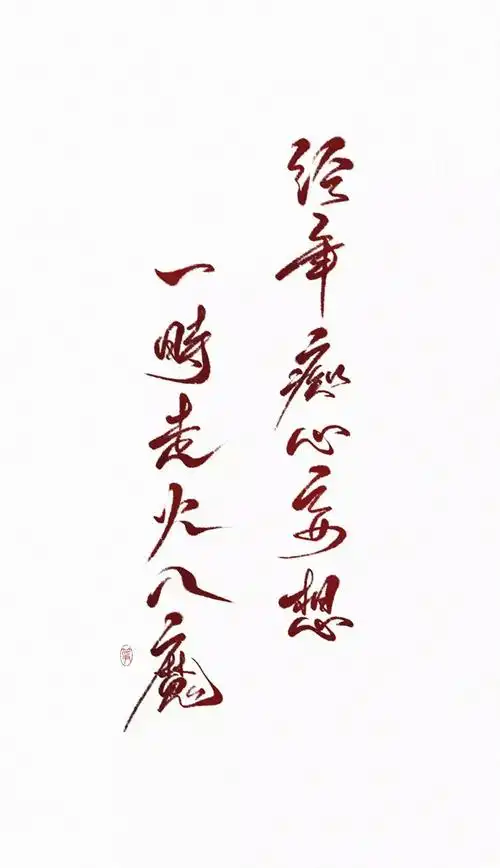 经年痴心妄想
一時走火入魔